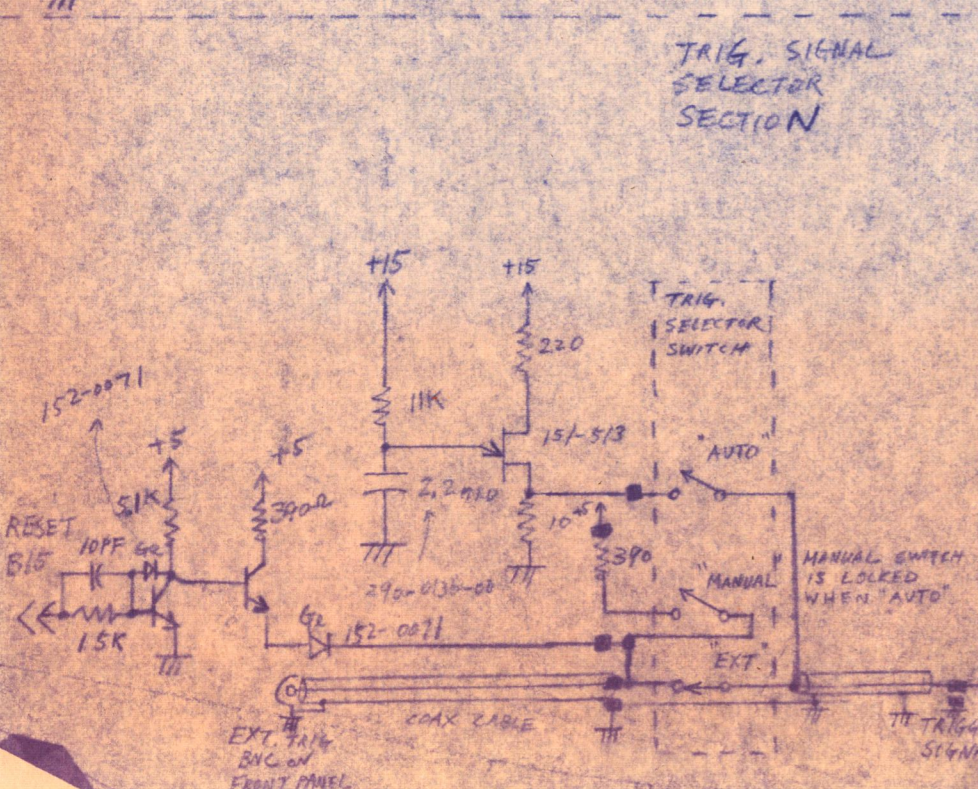 TRIG. SIGNAL
SELECTOR
SECTION
+15
+15
TRIG.
SELECTOR
SWITCH
220
152-0071
11K
151-513
"AUTO"
+5
+5
51K
390Ω
2.2
10
+5
RESET
B15
10PF
Ge
390
"MANUAL"
MANUAL SWITCH
IS LOCKED
WHEN "AUTO"
290-0136-00
15K
Ge
152-0071
"EXT."
COAX CABLE
EXT. TRIG
BNC ON
FRONT PANEL
TRIG
SIGNA